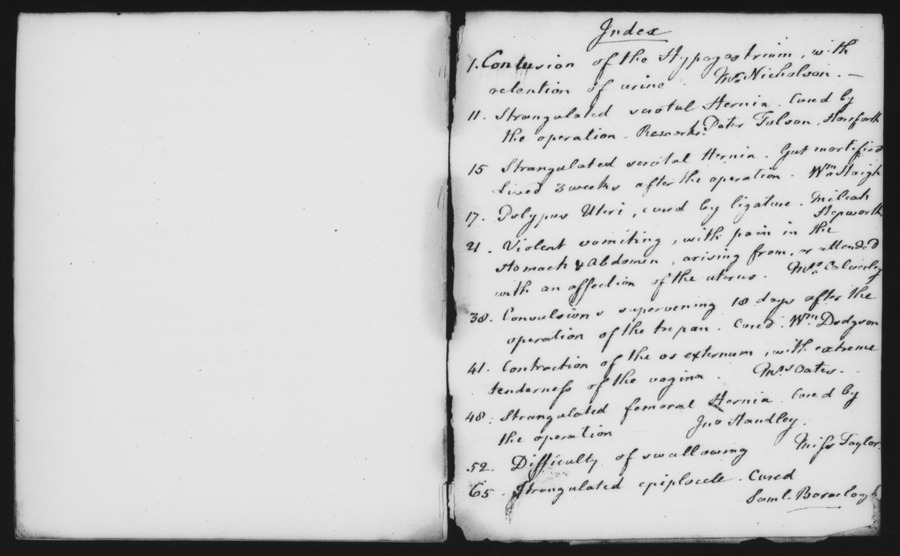 Index
1. Contusion of the Hypogastrium, with
retention of urine. Mrs Nicholson. —
11. Strangulated scrotal Hernia. Cured by
the operation. Remarks. Peter Tulson, Horsforth
15 Strangulated scrotal Hernia. Gut mortified
Lived 3 weeks after the operation. Wm Haigh
17. Polypus Uteri, cured by ligature.
Hepworth
21. Violent vomiting, with pain in the
stomach & Abdomen, arising from, or attended
with an affection of the uterus. Mrs
38. Convulsions supervening 18 days after the
operation of the trepan. Cured. Wm Dodgson
41. Contraction of the os externum, with extreme
tenderness of the vagina. Mrs Oates.
48. Strangulated femoral Hernia. Cured by
the operation Jno Handley.
52. Difficulty of swallowing Miss Taylor.
65. Strangulated epiplocele. Cured
Saml. Baraclough